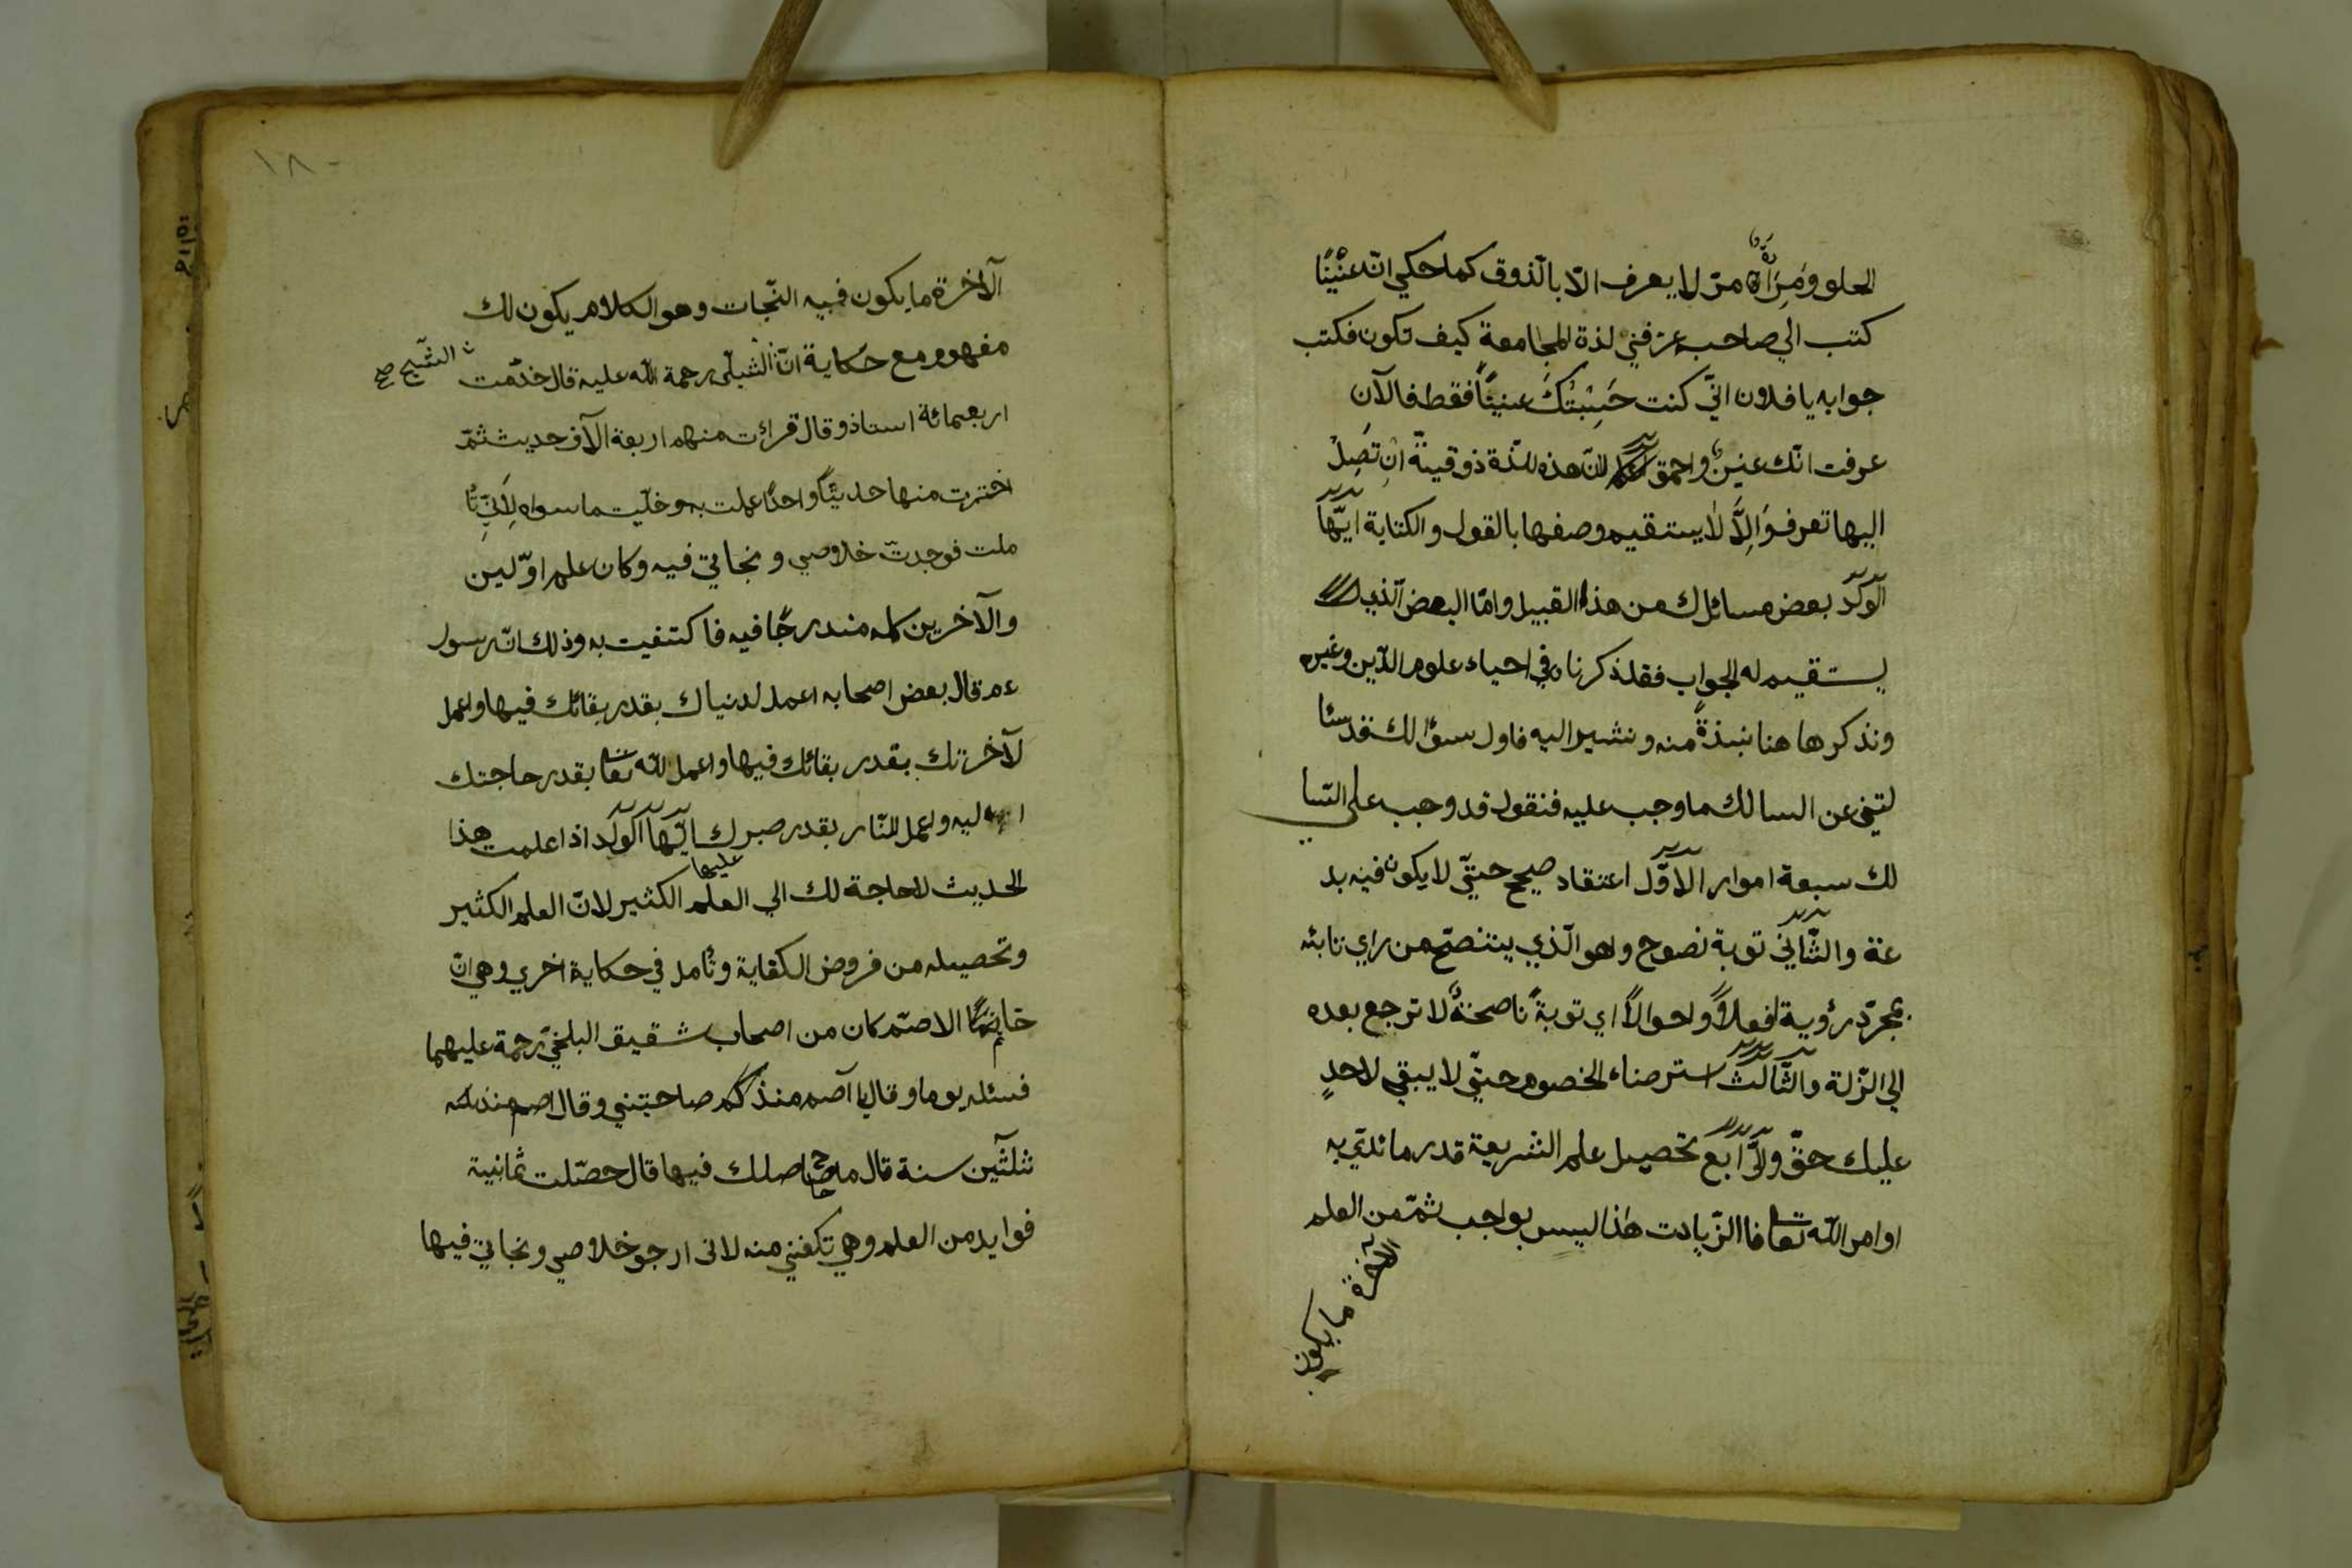 الحلو ومرارة مرّ لا يعرف الّا بالّذوق كما حكي انّ عنّينًا
كتب الي صاحب عرّفني لذة المجامعة كيف تكون فكتب
جوابه يا فلان انّي كنت حَسِبْتُكَ عنينًا فقط فالآن
عرفت انّك عنين واحمق لانّ هذه للذّة ذوقينة ان تَصِلْ
اليها تعرف وَالِاَّ لا يستقيم وصفها بالقول والكتابة ايّها
الولد بعض مسائلك من هذا القبيل وامّا البعض الّذي
يستقيم له الجواب فقد ذكرناه في احياء علوم الدّين وغيره
ونذكر ها هنا نبذةً منه ونشير اليه فاول سؤالك فقد سئا
لتني عن السالك ما وجب عليه فنقول قد وجب علي السّا
لك سبعة امور الاوّل اعتقاد صحيح حتّي لا يكون فيه بد
عة والثّاني توبة نصوح وهو الّذي ينتصّح من راي تائبه
بمجرّد رؤية افعالاً واحوالاً اي توبةً ناصحةً لا ترجع بعده
الي الزّلة والثّالث استرضاء الخصوم حتّي لا يبقي لاحدٍ
عليك حقّ والرّابع تحصيل علم الشريعة قدر ما تؤدّي به
اوامر اللّه تعا فا الزّيادت هذا ليس بواجب ثمّ من العلم
الآخرة ما يكون
١٨٠
الآخرة ما يكون فيه النّجات وهو الكلام يكون لك
مفهوم مع حكاية انّ الشبلّي رحمة اللّه عليه قال خدّمت
الشيخ صح
اربعمائة استاذ وقال قرأت منهم اربعة الآف حديث ثمّ
اخترت منها حديثًا واحدًا عملت به وخلّيت ما سواه لِاَنِّي تأ
ملت فوجدت خلاصي ونجاتي فيه وكان علم اوّلين
والآخرين كله مندرجًا فيه فاكتفيت به وذلك انّ رسول
عم قال بعض اصحابه اعمل لدنياك بقدر بقائك فيها واعمل
لآخرتك بقدر بقائك فيها واعمل للّه تعا بقدر حاجتك
اليه واعمل للنّار بقدر صبرك ايّها الولد اذا علمت هذا
عليها
الحديث لاحاجة لك الي العلم الكثير لانّ العلم الكثير
وتحصيله من فروض الكفاية وتأمل في حكاية اخري وهي انّ
حاتم الاصمّ كان من اصحاب شقيق البلخيّ رحمة عليهما
فسئله يوما وقال يا آصم منذ كم صاحبتني وقال اصم منذ
ثلثين سنة قال ما حاصلك فيها قال حصّلت ثمانية
فوايد من العلم وهي تكفني منه لانى ارجو خلاصي ونجاتي فيها